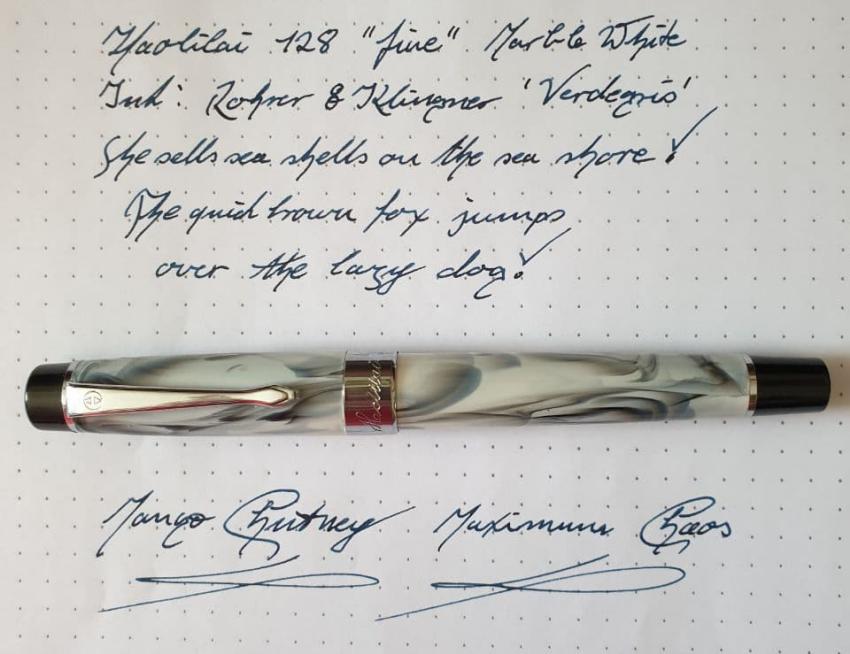 Haolilai 128 "fine" Marble White
Ink: Rohrer & Klingner 'Verdegris'
She sells sea shells on the sea shore!
The quick brown fox jumps
over the lazy dog!
Haolilai
Mango Chutney Maximum Chaos